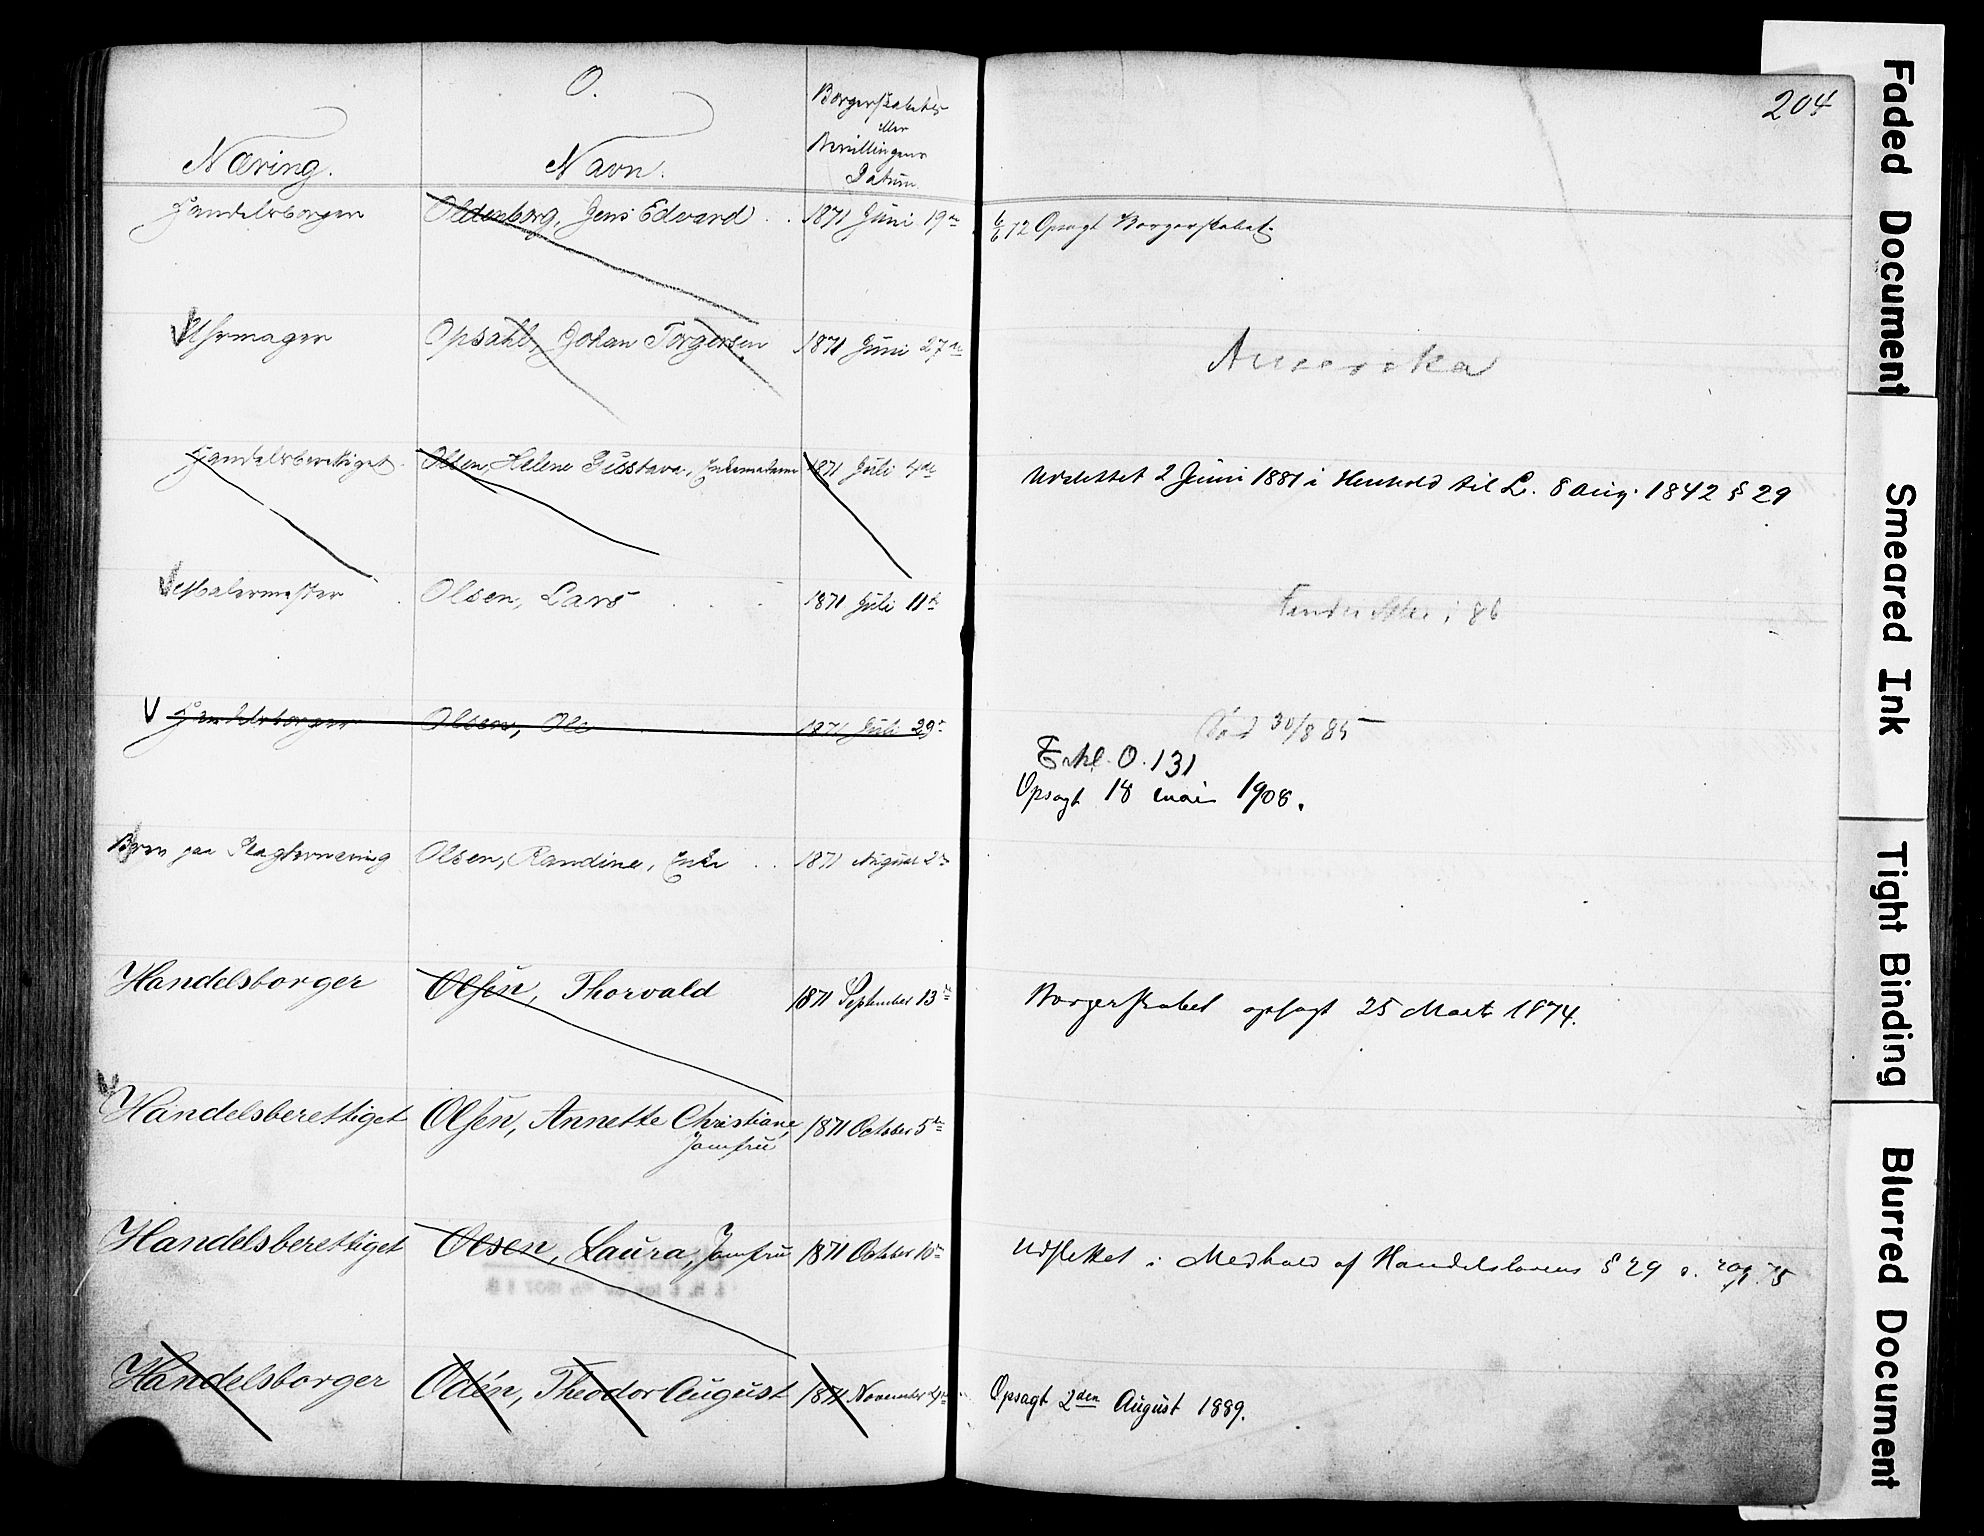 O.
204
Næring.
Navn.
Borgerskabets
eller
Bevillingens
Datum
Handelsborger Oldenborg, Jens Edvard 1871 Juni 19de 6/6 72 Opsagt Borgerskabet.
Uhrmager Opsahl, Johan Torgersen 1871 Juni 27de Amerika
Handelsberettiget Olsen, Helene Gustava, Enkemadame 1871 Juli 4de Udslettet 2 Juni 1881 i Henhold til L. 8 Aug. 1842 § 29
Malermester Olsen, Lars 1871 Juli 11te i 86
Handelsborger Olsen, Ole 1871 Juli 29de 30/8 85
Erkl. O. 131
Opsagt 18 mai 1908.
Brev paa Olsen, Randine, Enke 1871 August 2den
Handelsborger Olsen, Thorvald 1871 September 13de Borgerskabet opsagt 25 Marts 1874.
Handelsberettiget Olsen, Annette Christiane, 1871 October 5te
Jomfru
Handelsberettiget Olsen, Laura, Jomfru 1871 October 10de Udslettet i Medhold af Handelslovens § 29 75
Handelsborger Odén, Theodor August 1871 November 4de Opsagt 2den August 1889.
Faded Document
Smeared Ink
Tight Binding
Blurred Document